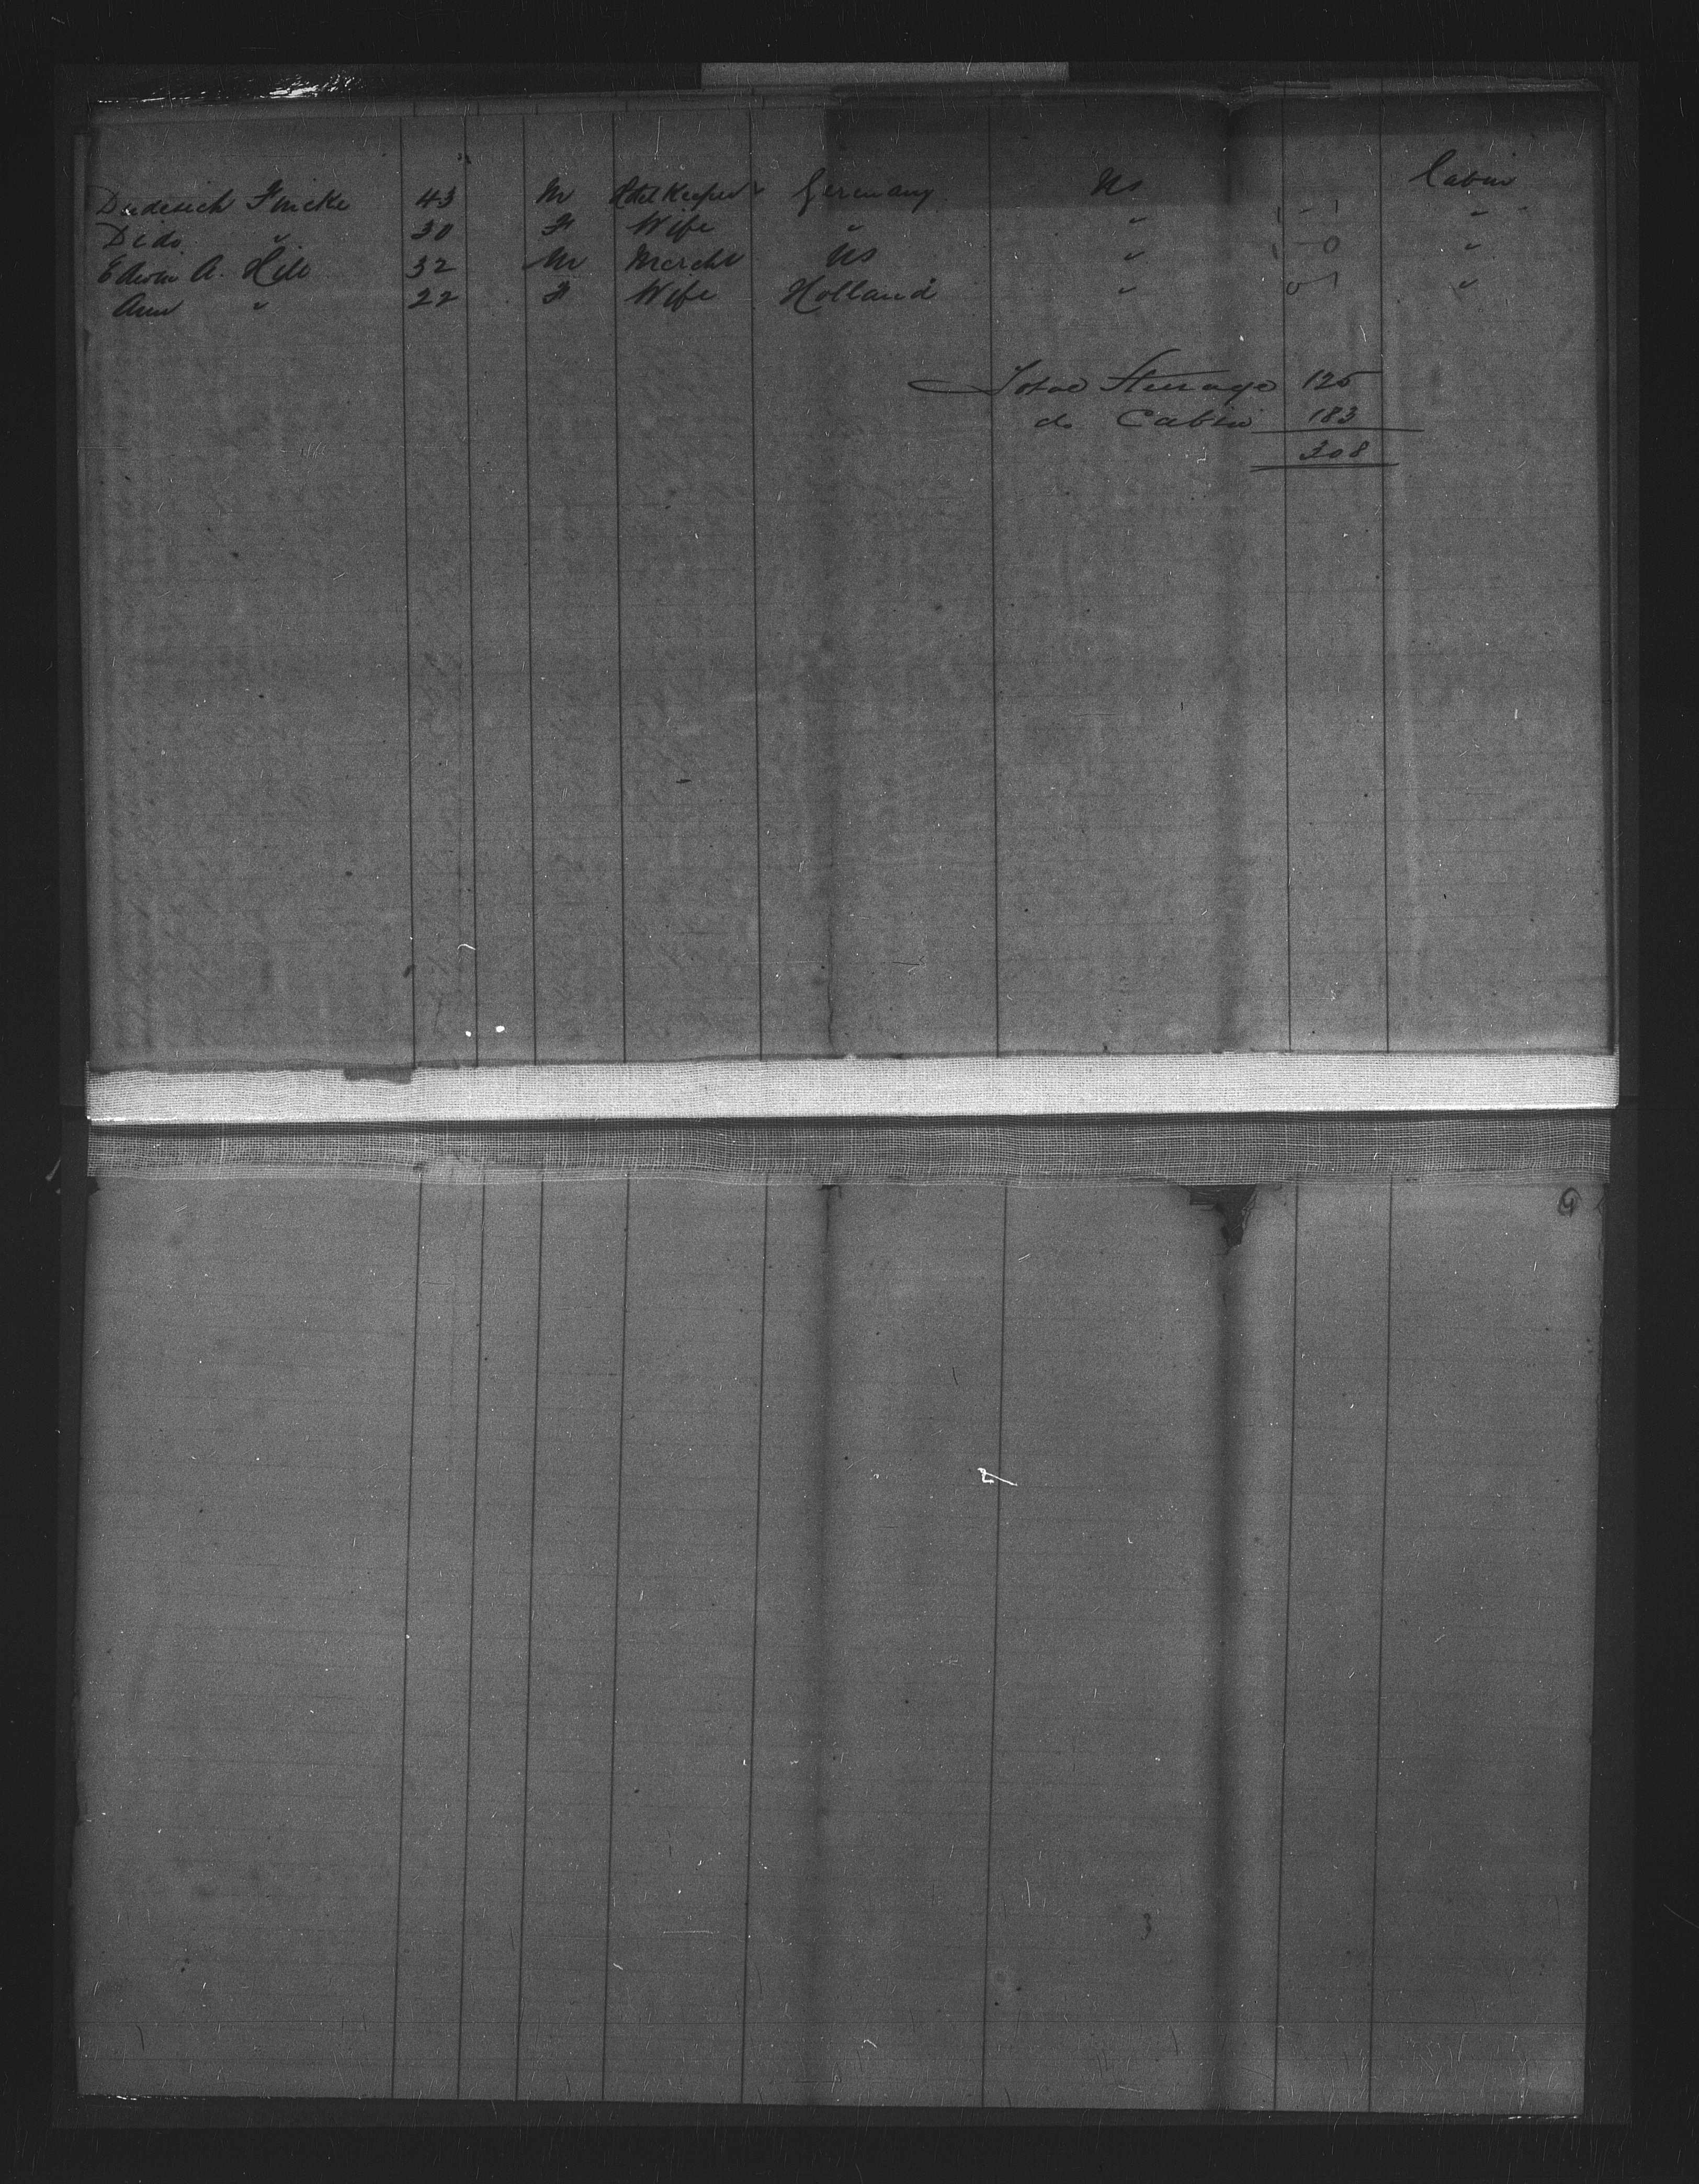 Diederich Fincke 43 M Hotel Keeper Germany Us Cabin
Dido " 30 F Wife " " 1-1 "
Edwin A. Hill 32 M Mercht Us " 1-0 "
Ann " 22 F Wife Holland " 0 1 "
Total Steerage 125
do Cabin 183
308
G